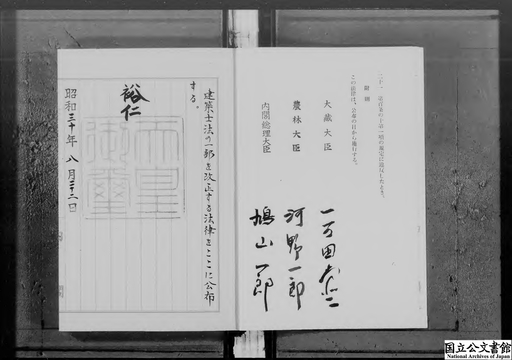 二十一
附則
この法律は、公布の日から施行する。
大蔵大臣 一万田尚登
農林大臣 河野一郎
内閣総理大臣 鳩山一郎
建築士法の一部を改正する法律をここに公布
する。
裕仁
天皇御璽
昭和三十年八月二十二日
国立公文書館
National Archives of Japan